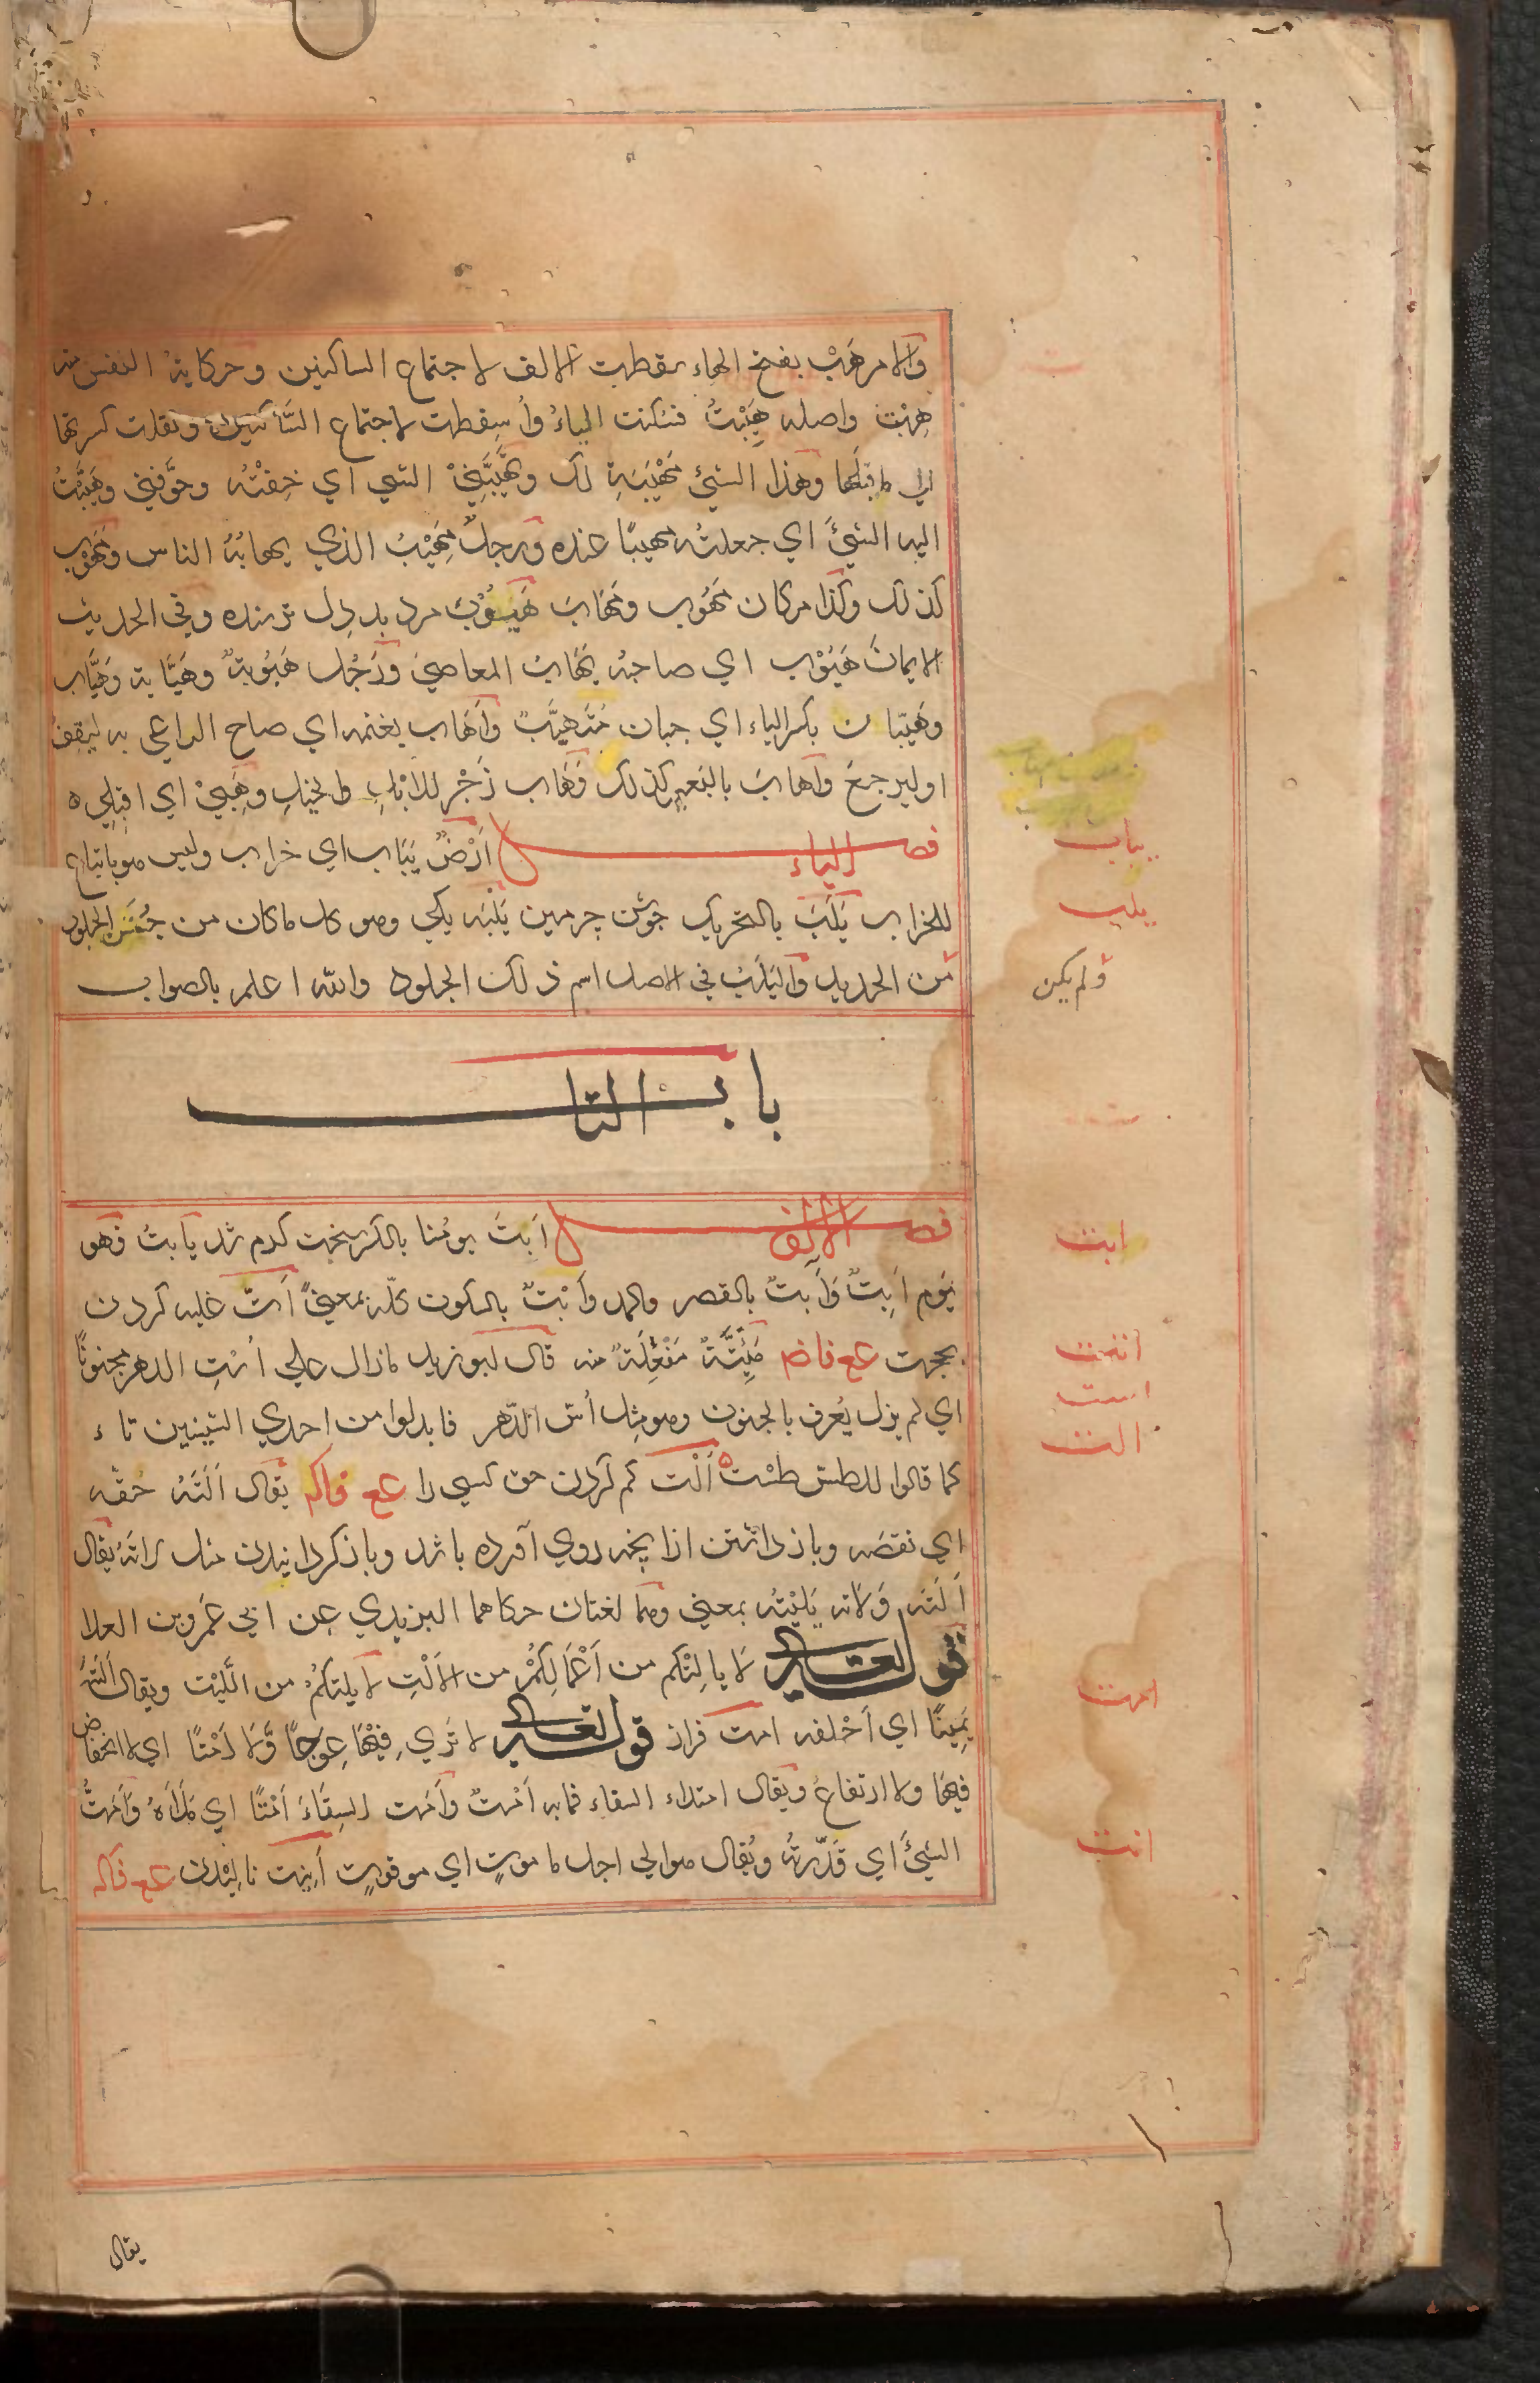 والامر هَبْ بفتح الهاء سقطت الالف لاجتماع الساكنين وحكاية النفس منه
هِبْتُ واصله هَيِبْتُ فسكنت الياءُ وأُسقطت لاجتماع الساكنين ونقلت كسرتها
الي ماقبلها وهذا الشئ مَهْيَبَة لك وتَهَيَّبَنِيْ الشي اي خِفْتُه وخَوَّفني وهَيَّبْتُ
اليه الشئَ اي جعلتُه مهيبًا عنده ورجلٌ مَهِيْبٌ الذي يهابُهُ الناس ومَهُوْب
كذلك وكذا مكان مَهُوب ومَهَاب هَيُوْب مرد بددل ترسنده وفي الحديث
الايمان هَيُوْب اي صاحبه يَهَابُ المعاصي ورَجُل هَيُوْبَةٌ وهَيَّابة وهَيَّاب
وهَيِّبان بكسر الياء اي جبان مُتَهَيِّبٌ وأَهَاب بغنمه اي صاح الراعي به ليقف
او ليرجعَ وأهابَ بالبعير كذلك وهَاب زَجْر للابل والخيل وهَبِيْ اي اقبِلي ه
فصل الياء اَرْضٌ يَبَاب اي خراب وليس هو باتباع
للخراب يَلَبَ بالتحريك جوشن چرمين يَلَبَه يكي وهو كل ماكان من جُنَنِ الجلود
من الحديد واليَلَبُ في الاصل اسم ذلك الجلود والله اعلم بالصواب
باب التا
فصل الالف اَبِتَ يومُنا بالكسر سخت كرم شد يابت فهو
يَوم اَبِتٌ وَآبِتٌ بالقصر والمد وأَبْتٌ بالسكون كلّه بمعنيً اَتّ غلبه كردن
بحجت ع ع فاض مَئِتَّةٌ مَفْعِلَة منه قال ابوزيد مازال علي اُسْتِ الدهر مجنونًا
اي لم يزل يُعرف بالجنون وهو مثل اُسّ الدّهر فابدلوا من احدي السّينين تاء
كما قالوا للطس طسْت ه اَلْت كم كردن حق كسي را ع ع فاكه يقال اَلَتَهُ حَقّه
اي نقصَه وباز داشتن ازا نچه روي آورده باشد وباز كردانيدن مثل لاتَهُ يقال
اَلَتَه وَلاته يَلِيْتُه بمعني وهما لغتان حكاهما اليزيدي عن ابي عَمرو بن العلا
قوله تعالي لا يالِتْكم من اَعْمَالِكُمْ من الالْتِ لا يلتكُم من اللَّيْت ويقال اَلَتَهُ
يَمِينًا اي اَحْلفه امت فراز قوله تعالي لا تَرَي فِيْهَا عِوَجًا وَّلا اَمْتًا اي لا انخفاض
فيها ولا ارتفاعَ ويقال امتلاء السقاء فما به اَمْتٌ وأَمَت السِقَاءَ اَمْتًا اي مَلأهُ وأَمَتُّ
الشئَ اي قَدّرتُه ويُقال هو الي اجل ماموتٍ اي موقوتٍ اَنِيْت ناليدن ع ع فاكه
يباب
يلب
ولم يكن
ابت
است
الت
امت
انت
يقال